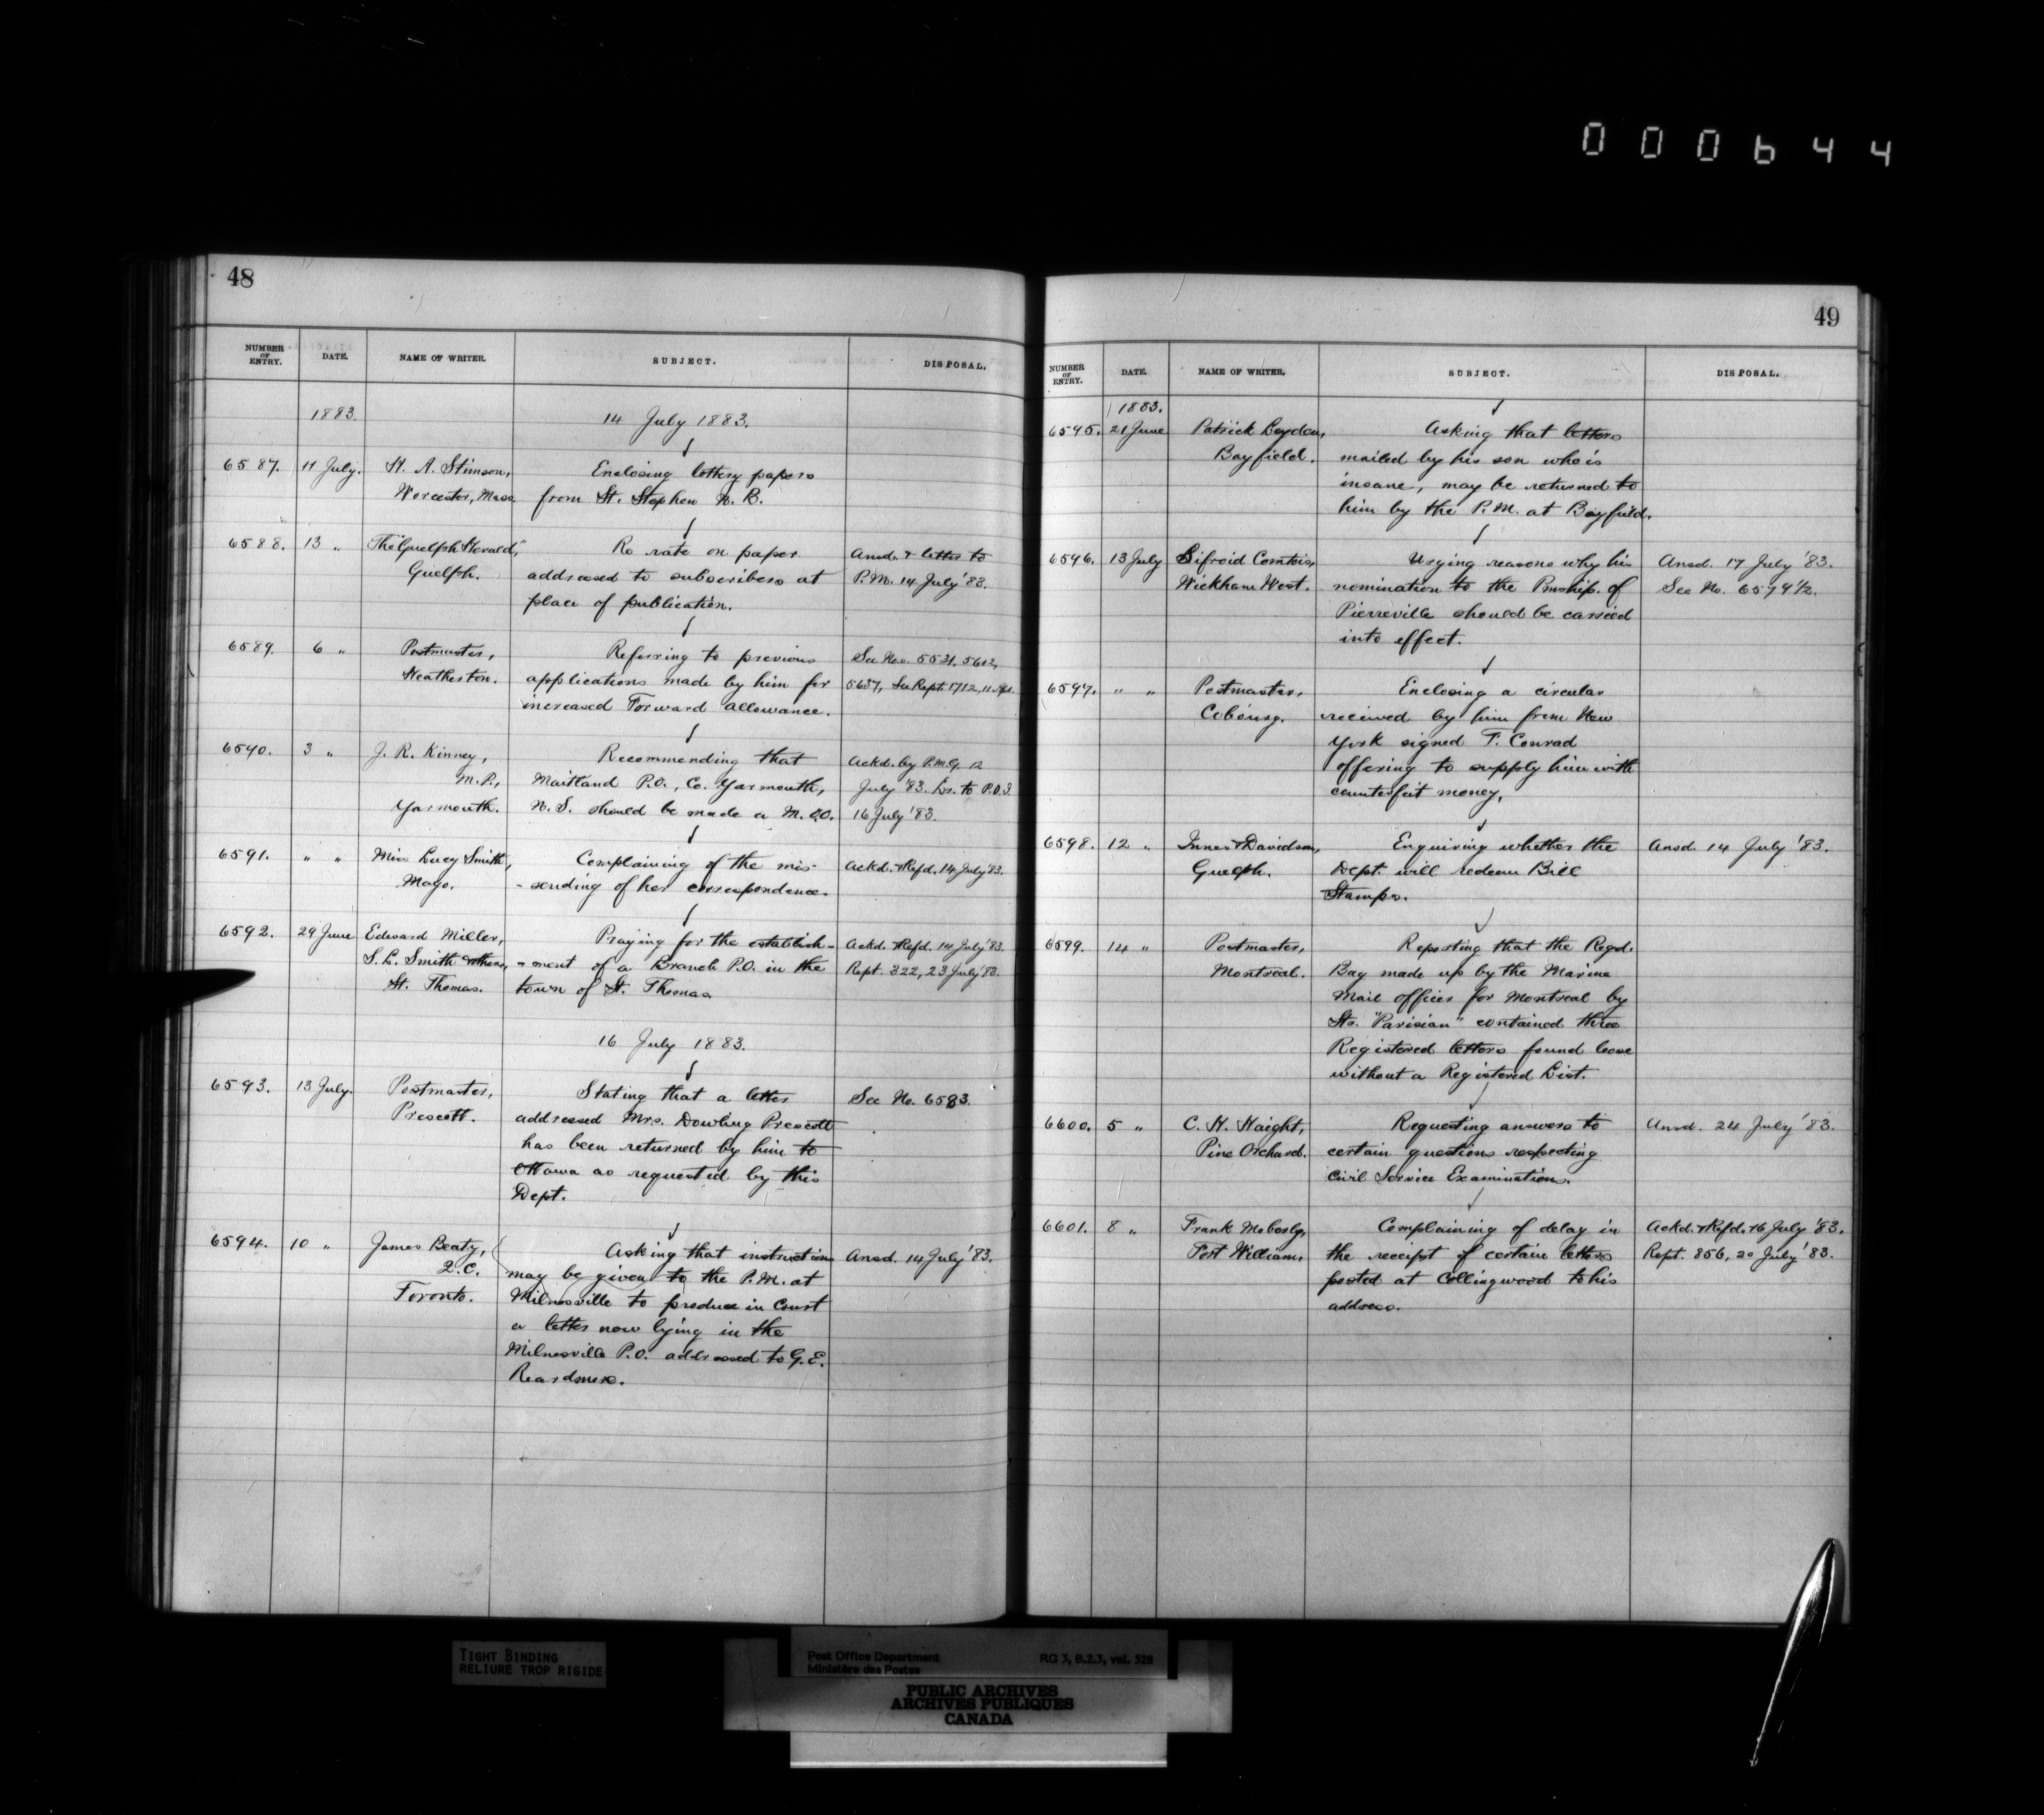 000644
48
NUMBER OF ENTRY. DATE. NAME OF WRITER. SUBJECT. DISPOSAL.
1883. 14 July 1883.
6587. 11 July. H. A. Stimson, Enclosing lottery papers
Worcester, Mass. from St. Stephen N. B.
6588. 13 " The "Guelph Herald," Re rate on paper Ansd. & letter to
Guelph. addressed to subscribers at P.M. 14 July '83.
place of publication.
6589. 6 " Postmaster, Referring to previous See Nos. 5531, 5612,
Heatherton. applications made by him for 5637, See Rept. 1712, 11
increased Forward allowance.
6590. 3 " J. R. Kinney, Recommending that Ackd. by P.M.G. 12
M.P., Maitland P.O., Co. Yarmouth, July '83. Lr. to P.O.I.
Yarmouth. N. S. should be made a M.O.O. 16 July '83.
6591. " " Miss Lucy Smith, Complaining of the mis- Ackd. & Refd. 14 July '83.
Mago. -sending of her correspondence.
6592. 29 June Edward Miller, Praying for the establish- Ackd. & Refd. 14 July '83.
S. L. Smith & others, -ment of a Branch P.O. in the Rept. 322, 23 July '83.
St. Thomas. town of St. Thomas.
16 July 1883.
6593. 13 July. Postmaster, Stating that a letter See No. 6583.
Prescott. addressed Mrs. Dowling Prescott
has been returned by him to
Ottawa as requested by this
Dept.
6594. 10 " James Beaty, Asking that instructions Ansd. 14 July '83.
Q.C. may be given to the P.M. at
Toronto. Milnesville to produce in Court
a letter now lying in the
Milnesville P.O. addressed to G. E.
Reardmore.
49
NUMBER OF ENTRY. DATE. NAME OF WRITER. SUBJECT. DISPOSAL.
1883.
6595. 21 June Patrick Leydon, Asking that letters
Bayfield. mailed by his son who is
insane, may be returned to
him by the P.M. at Bayfield.
6596. 13 July Sifroid Comtois, Urging reasons why his Ansd. 17 July '83.
Wickham West. nomination to the Pmship. of See No. 6579½.
Pierreville should be carried
into effect.
6597. " " Postmaster, Enclosing a circular
Cobourg. received by him from New
York signed T. Conrad
offering to supply him with
counterfeit money,
6598. 12 " Innes & Davidson, Enquiring whether the Ansd. 14 July '83.
Guelph. Dept. will redeem Bill
Stamps.
6599. 14 " Postmaster, Reporting that the Regd.
Montreal. Bag made up by the Marine
Mail officer for Montreal by
Str. "Parisian" contained three
Registered letters found loose
without a Registered List.
6600. 5 " C. H. Haight, Requesting answers to Ansd. 24 July '83.
Pine Orchard. certain questions respecting
Civil Service Examinations.
6601. 8 " Frank Moberly, Complaining of delay in Ackd. & Refd. 16 July '83.
Port William, the receipt of certain letters Rept. 856, 20 July '83.
posted at Collingwood to his
address.
TIGHT BINDING
RELIURE TROP RIGIDE
Post Office Department RG 3, B.2.3, vol. 528
Ministère des Postes
PUBLIC ARCHIVES
ARCHIVES PUBLIQUES
CANADA